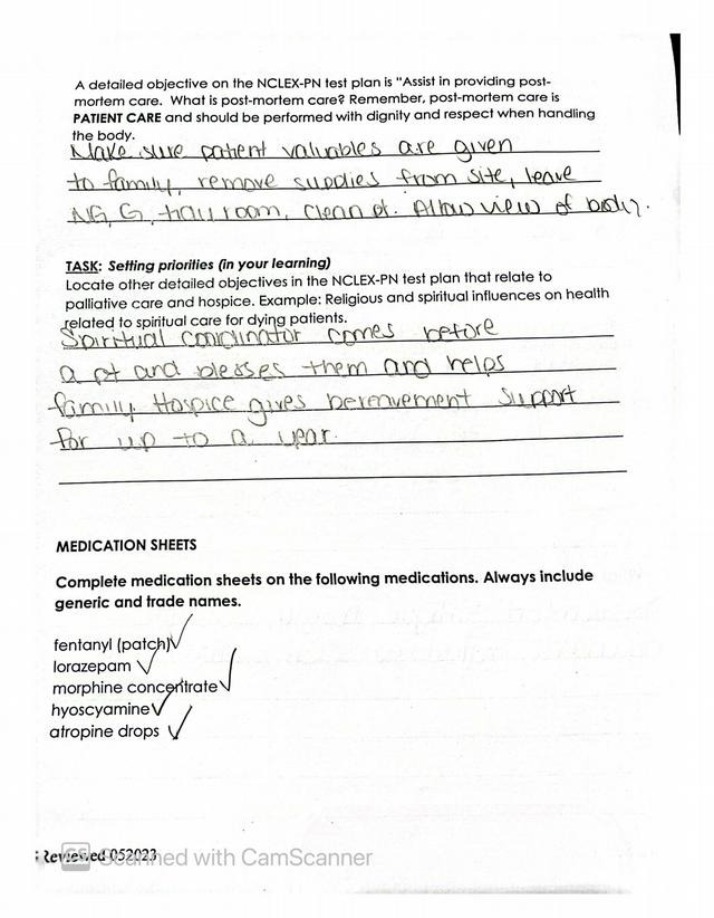 A detailed objective on the NCLEX-PN test plan is "Assist in providing post-
mortem care. What is post-mortem care? Remember, post-mortem care is
PATIENT CARE and should be performed with dignity and respect when handling
the body.
Make sure patient valuables are given
to family, remove supplies from site, leave
NG, G, room, clean pt. Allow view of body.
TASK: Setting priorities (in your learning)
Locate other detailed objectives in the NCLEX-PN test plan that relate to
palliative care and hospice. Example: Religious and spiritual influences on health
related to spiritual care for dying patients.
Spiritual comes before
a pt and blesses them and helps
family. Hospice gives support
for up to a year.
MEDICATION SHEETS
Complete medication sheets on the following medications. Always include
generic and trade names.
fentanyl (patch)
lorazepam
morphine concentrate
hyoscyamine
atropine drops
Reviewed 052023
CS Scanned with CamScanner